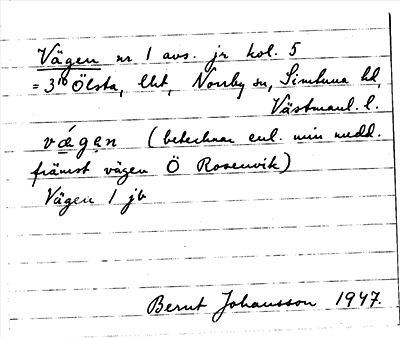 Vägen nr 1 avs. jr kol. 5
= 3¹⁰ Ölsta, lht, Norrby sn, Simtuna hd,
Västmanl. l.
vǽgen (betecknar enl. min medd.
främst vägen Ö Rosenvik)
Vägen 1 jb
Bernt Johansson 1947.